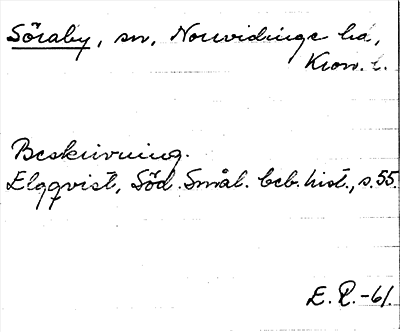 Söraby, sn, Norrvidinge hd,
Kron. l.
Beskrivning.
Elgqvist, Söd. Smål. beb. hist., s. 55.
E. P. -61.